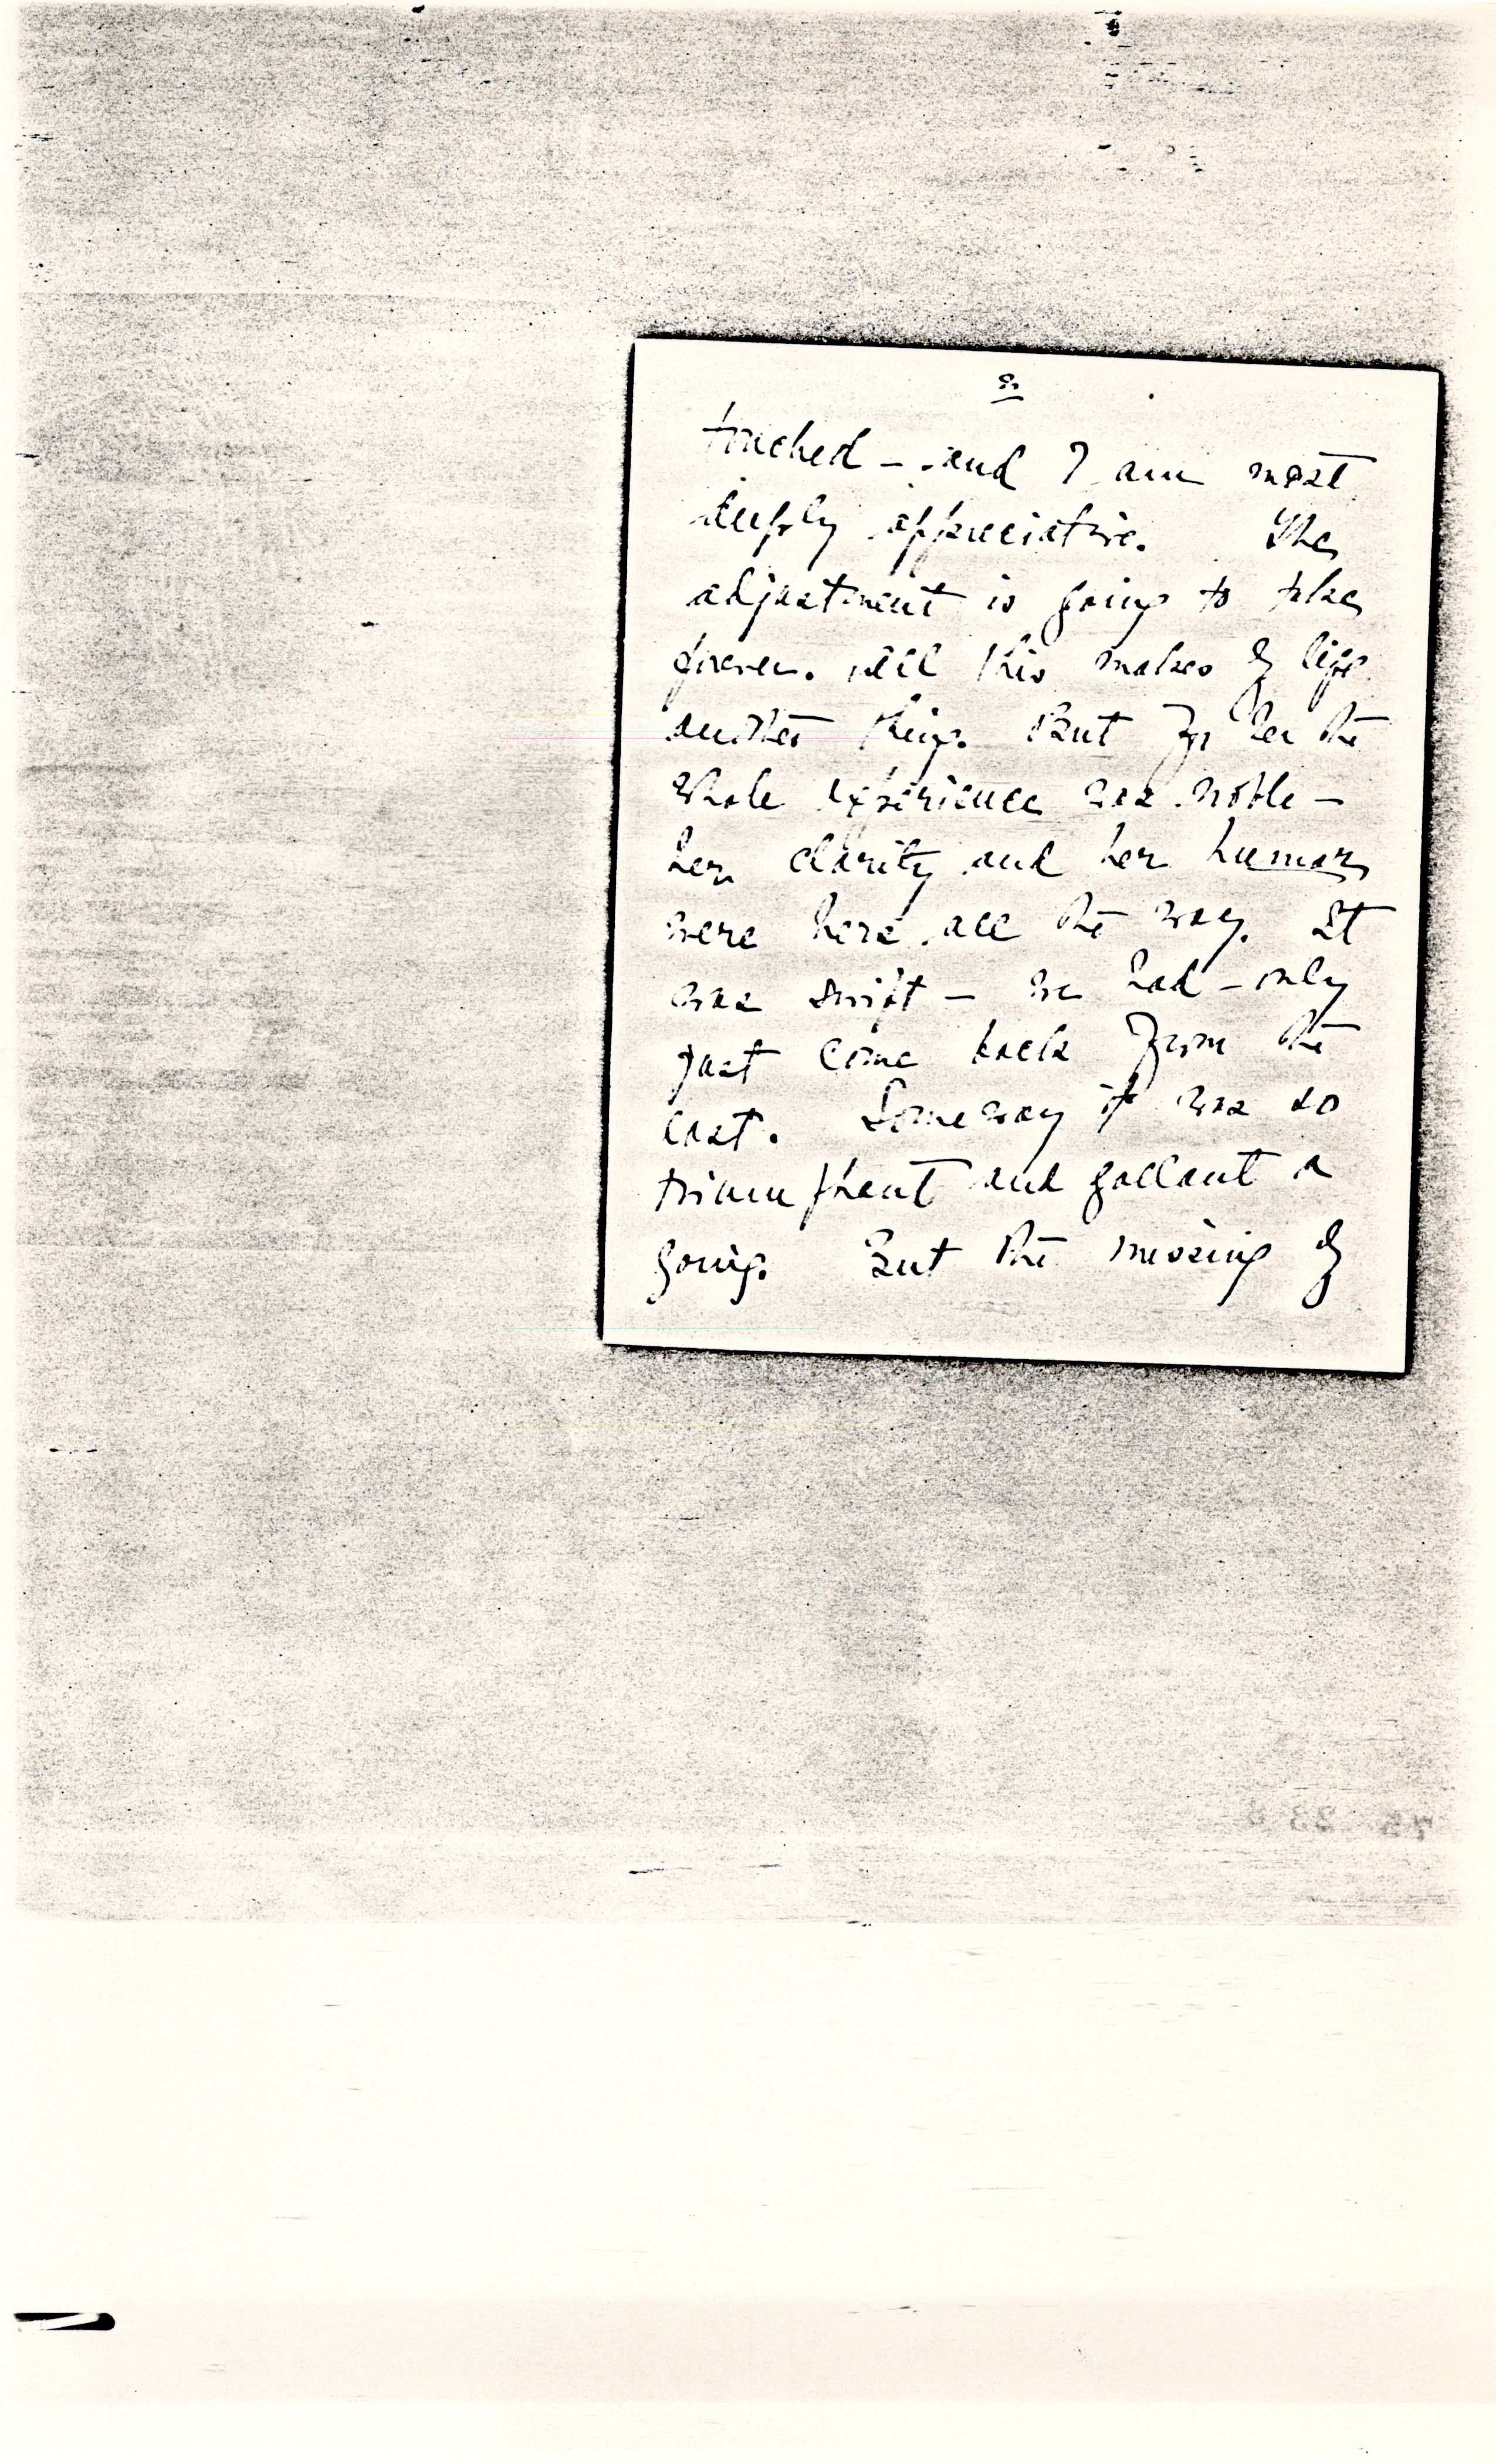 2.
touched — and I am most
deeply appreciative. The
adjustment is going to take
forever. All this makes of life
another thing. But for her the
whole experience was noble —
her clarity and her humor
were hers all the way. It
was swift — we had — only
just come back from the
east. Someway it was so
triumphant and gallant a
going. But the missing of